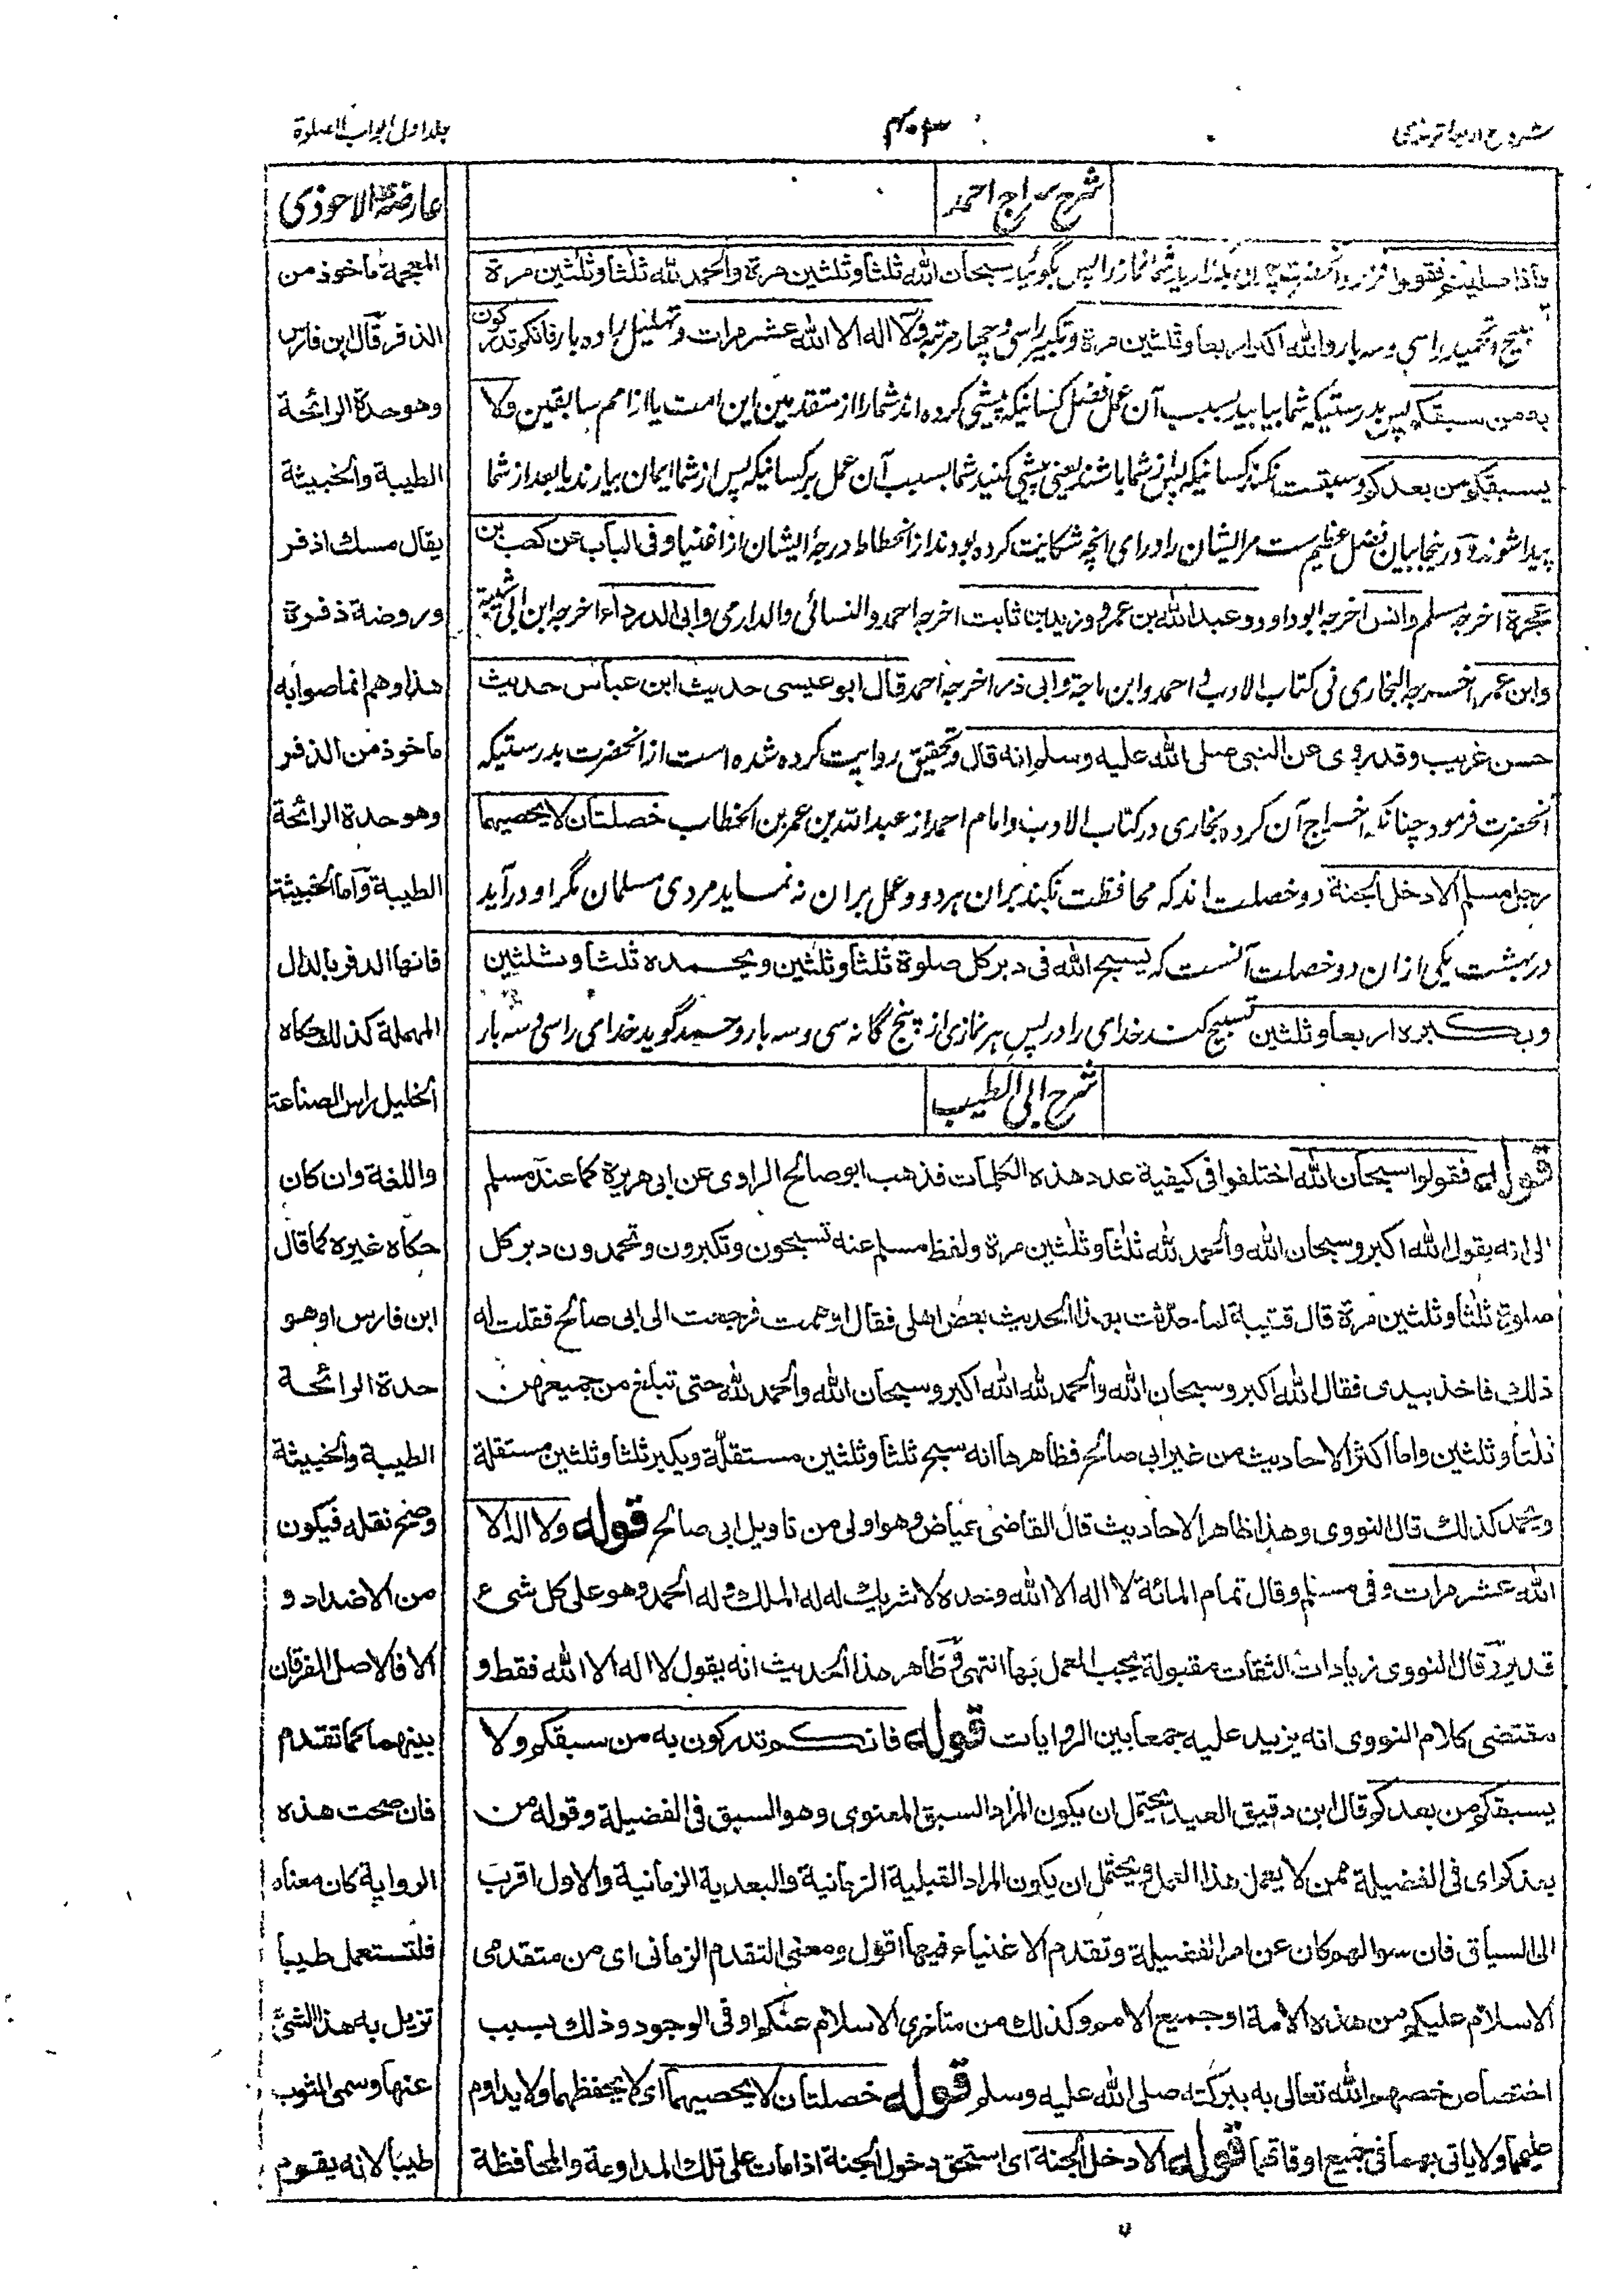 شروح اربعہ ترمذی
۴۰۳
جلد اول ابواب الصلوة
شرح سراج احمد
فاذا صليتم فقولوا پس بگوئید سبحان الله ثلثا وثلثين مرة والحمد لله ثلثا وثلثين مرة
تسبیح و تحمید را سی و سه بار والله اکبر اربعا وثلثين مرة وتکبیر را سی و چهار مرتبه ولا اله الا الله عشر مرات وتهلیل را ده بار فانكم تدركون
به من سبقكم پس بدرستیکه شما بیابید بسبب آن عمل فضل کسانیکه پیشی کرده اند شما را از متقدمین این امت یا از امم سابقین ولا
يسبقكم من بعدكم وسبقت نکند کسانیکه پس از شما باشند یعنی پیشی کنید شما بسبب آن عمل بر کسانیکه پس از شما ایمان بیارند یا بعد از شما
پیدا شوند و درینجا بیان فضل عظیم ست مر ایشان را ورای انچه شکایت کرده بودند از انحطاط درجۂ ایشان از اغنیا وفي الباب عن كعب بن
عجرة اخرجه مسلم وانس اخرجه ابوداود وعبد الله بن عمرو وزيد بن ثابت اخرجه احمد والنسائي والدارمي وابي الدرداء اخرجه ابن ابي شيبة
وابن عمر اخرجه البخاري في كتاب الادب واحمد وابن ماجة وابي ذر اخرجه احمد قال ابو عيسى حديث ابن عباس حديث
حسن غريب وقد روى عن النبي صلى الله عليه وسلم انه قال وتحقیق روایت کرده شده است از آنحضرت بدرستیکه
آنحضرت فرمود چنانکه اخراج آن کرده بخاری در کتاب الادب و امام احمد از عبد الله بن عمر بن الخطاب خصلتان لا يحصيهما
رجل مسلم الا دخل الجنة دو خصلت اند که محافظت نکند بران هر دو و عمل بران نه نماید مردی مسلمان مگر او درآید
در بهشت یکی ازان دو خصلت آنست که يسبح الله في دبر كل صلوة ثلثا وثلثين ويحمده ثلثا وثلثين
ويكبره اربعا وثلثين تسبیح کند خدای را در پس هر نمازی از پنج گانه سی و سه بار و حمد گوید خدای را سی و سه بار
شرح ابی الطیب
قوله فقولوا سبحان الله اختلفوا في كيفية عدد هذه الكلمات فذهب ابو صالح الراوى عن ابى هريرة كما عند مسلم
الى انه يقول الله اكبر وسبحان الله والحمد لله ثلثا وثلثين مرة ولفظ مسلم عنه تسبحون وتكبرون وتحمدون دبر كل
صلوة ثلثا وثلثين مرة قال قتيبة لما حدثت بهذا الحديث بعض اهلى فقال او همت فرجعت الى ابى صالح فقلت له
ذلك فاخذ بيدى فقال الله اكبر وسبحان الله والحمد لله الله اكبر وسبحان الله والحمد لله حتى تبلغ من جميعهن
ثلثا وثلثين واما اكثر الاحاديث من غير ابى صالح فظاهرها انه سبح ثلثا وثلثين مستقلة ويكبر ثلثا وثلثين مستقلة
ويحمد كذلك قال النووى وهذا ظاهر الاحاديث قال القاضى عياض وهو اولى من تاويل ابى صالح قوله ولا اله الا
الله عشر مرات وفى مسلم وقال تمام المائة لا اله الا الله وحده لا شريك له له الملك وله الحمد وهو على كل شىء
قدير قال النووى زيادات الثقات مقبولة يجب العمل بها انتهى وظاهر هذا الحديث انه يقول لا اله الا الله فقط و
مقتضى كلام النووى انه يزيد عليه جمعا بين الروايات قوله فانكم تدركون به من سبقكم ولا
يسبقكم من بعدكم قال ابن دقيق العيد يحتمل ان يكون المراد السبق المعنوى وهو السبق فى الفضيلة وقوله من
بعدكم اى فى الفضيلة ممن لا يعمل هذا العمل ويحتمل ان يكون المراد القبلية الزمانية والبعدية الزمانية والاول اقرب
الى السياق فان سوالهم كان عن امر الفضيلة وتقدم الاغنياء فيها اقول ومعنى التقدم الزمانى اى من متقدمى
الاسلام عليكم من هذه الامة او جميع الامم وكذلك من متأخرى الاسلام عنكم او فى الوجود وذلك بسبب
اختصاص خصهم الله تعالى به ببركته صلى الله عليه وسلم قوله خصلتان لا يحصيهما اى لا يحفظهما ولا يداوم
عليهما ولا ياتى بهما فى جميع اوقاتهما قوله الا دخل الجنة اى استحق دخول الجنة اذا مات على تلك المداومة والمحافظة
عارضة الاحوذی
المعجمة ماخوذ من
الذفر قال ابن فارس
وهو حدة الرائحة
الطيبة والخبيثة
يقال مسك اذفر
وروضة ذفرة
هذا وهم انما صوابه
ماخوذ من الذفر
وهو حدة الرائحة
الطيبة واما الخبيثة
فانها الدفر بالدال
المهملة كذلك حكاه
الخليل راس الصناعة
واللغة وان كان
حكاه غيره كما قال
ابن فارس او هو
حدة الرائحة
الطيبة والخبيثة
وصح نقله فيكون
من الاضداد و
الا فالاصل الفرقان
بينهما كما تقدم
فان صحت هذه
الرواية كان معناه
فلتستعمل طيبا
تزيل به هذا الشئ
عنها وسمى الثوب
طيبا لانه يقوم